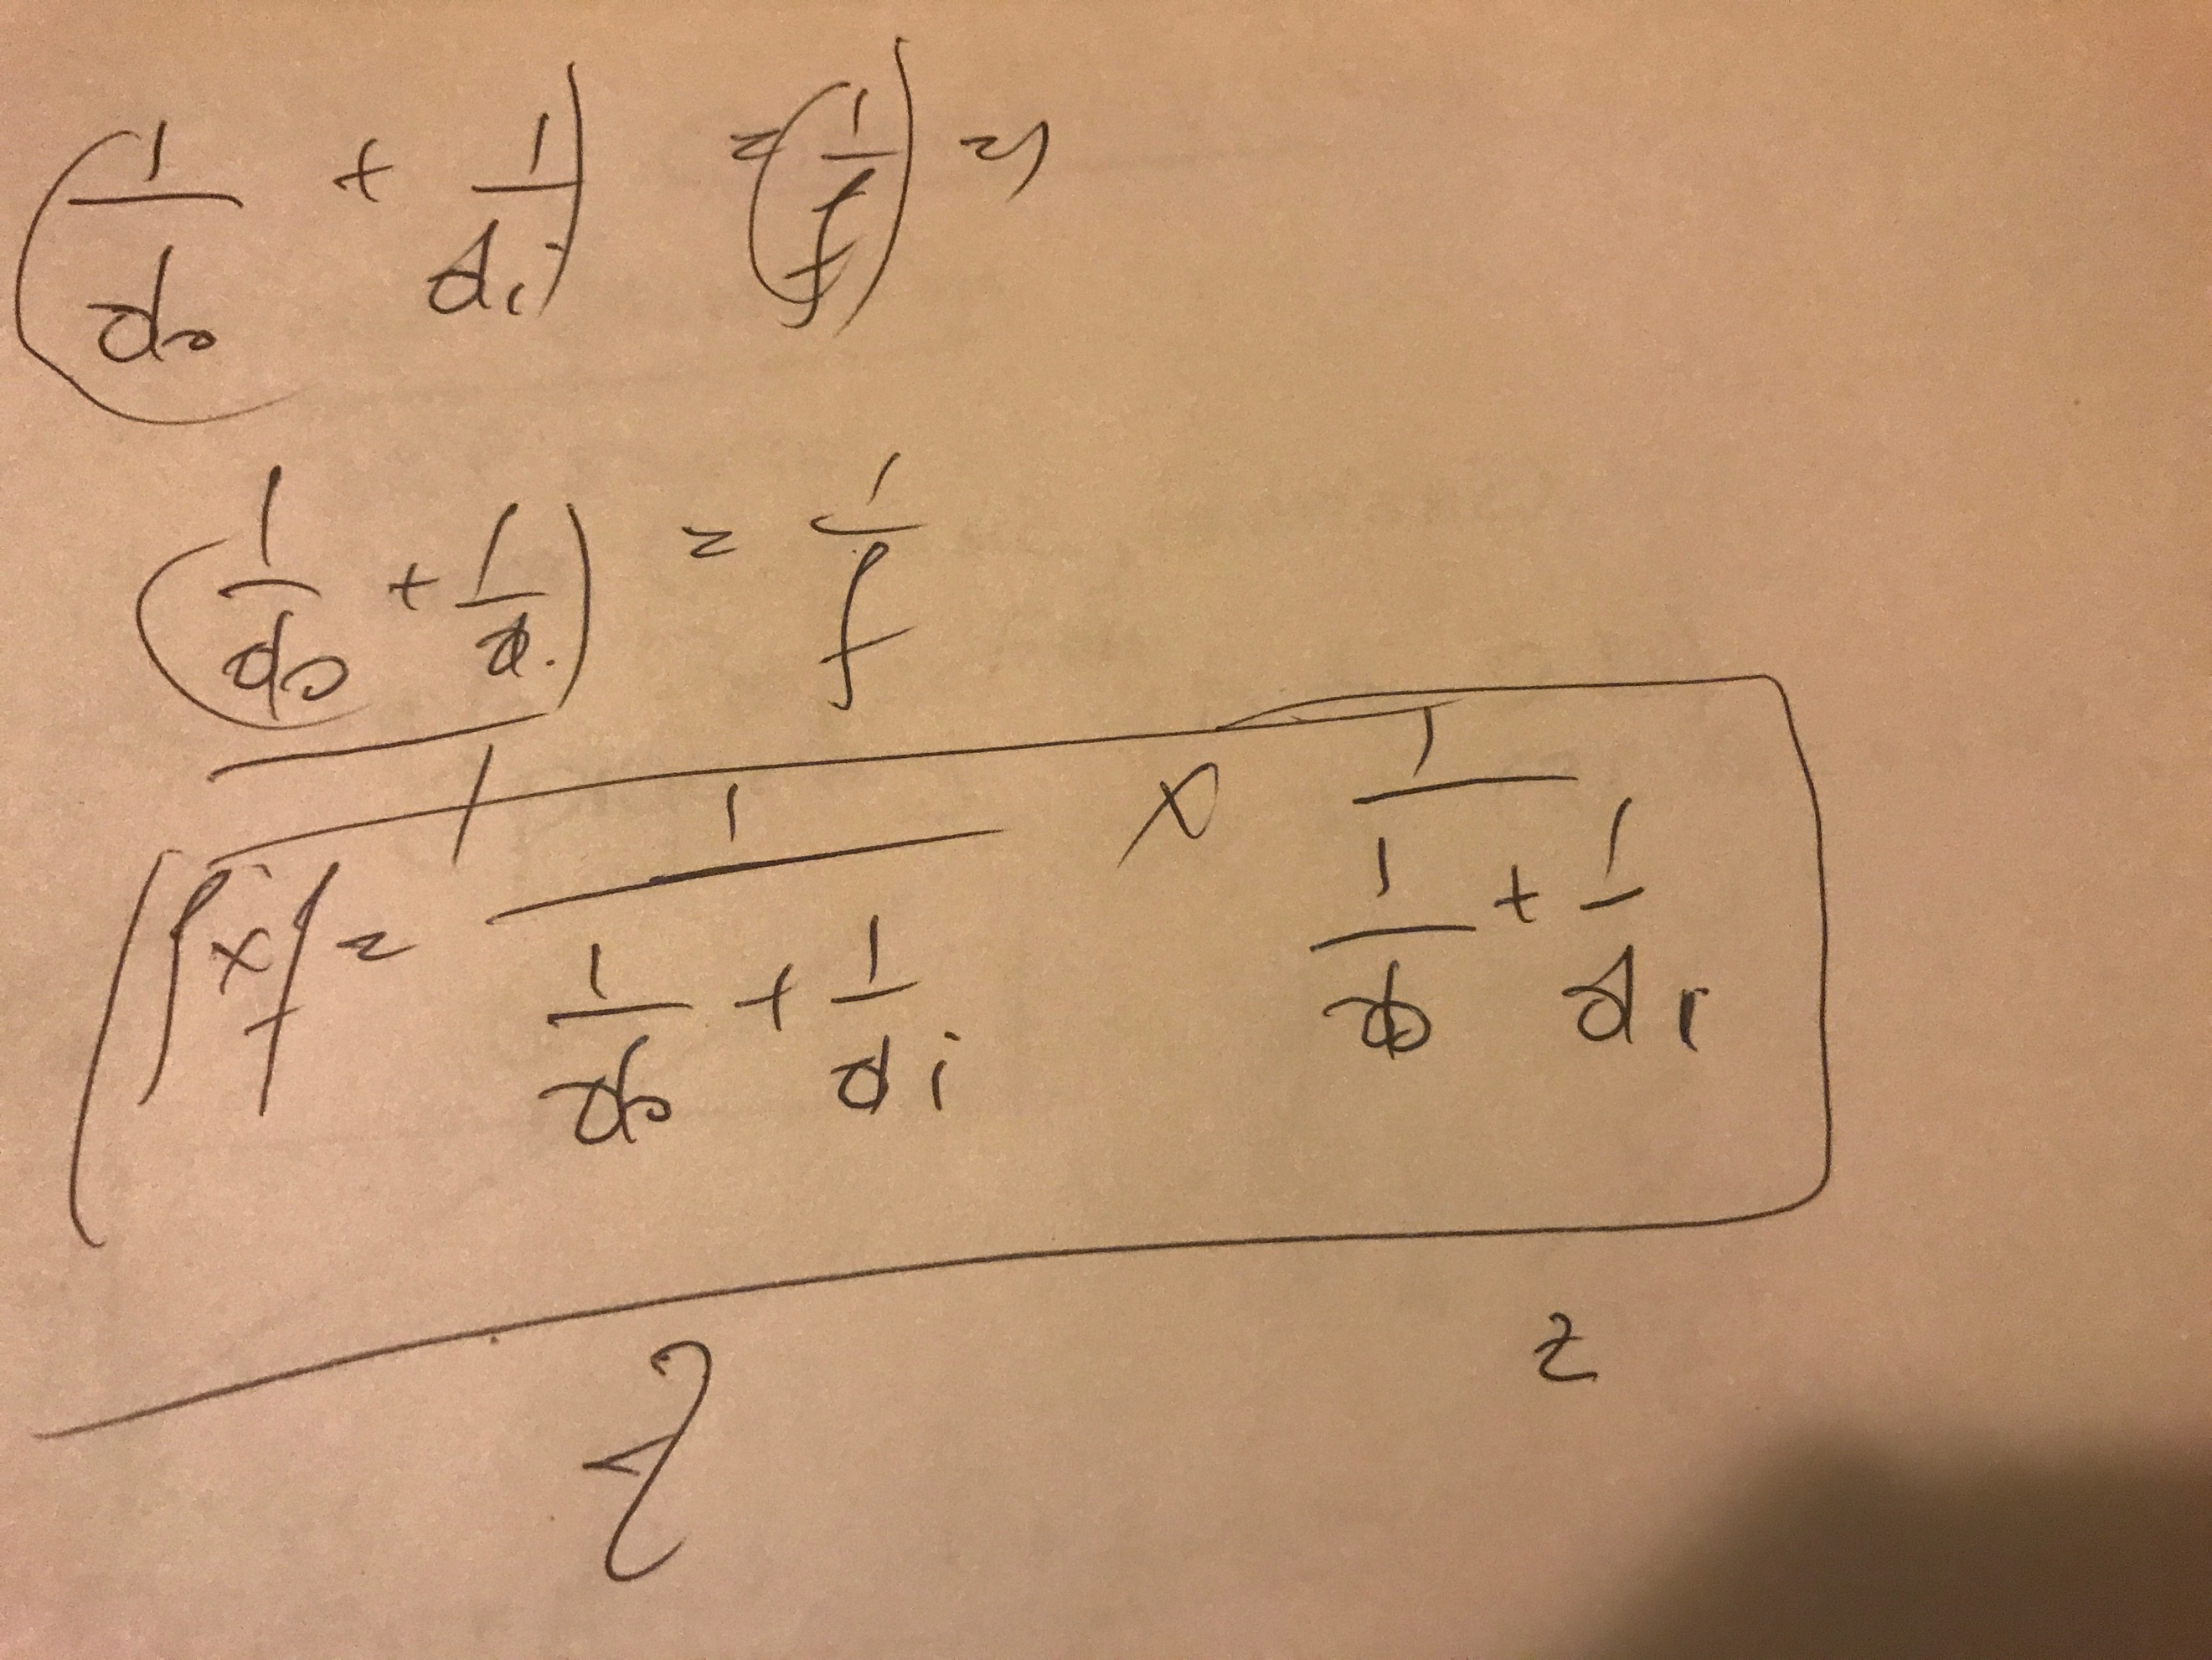 (1/do + 1/di) = (1/f) =)
(1/do + 1/d.) = 1/f
1
f x f = 1/(1/do + 1/di) x 1/(1/do + 1/di)
2